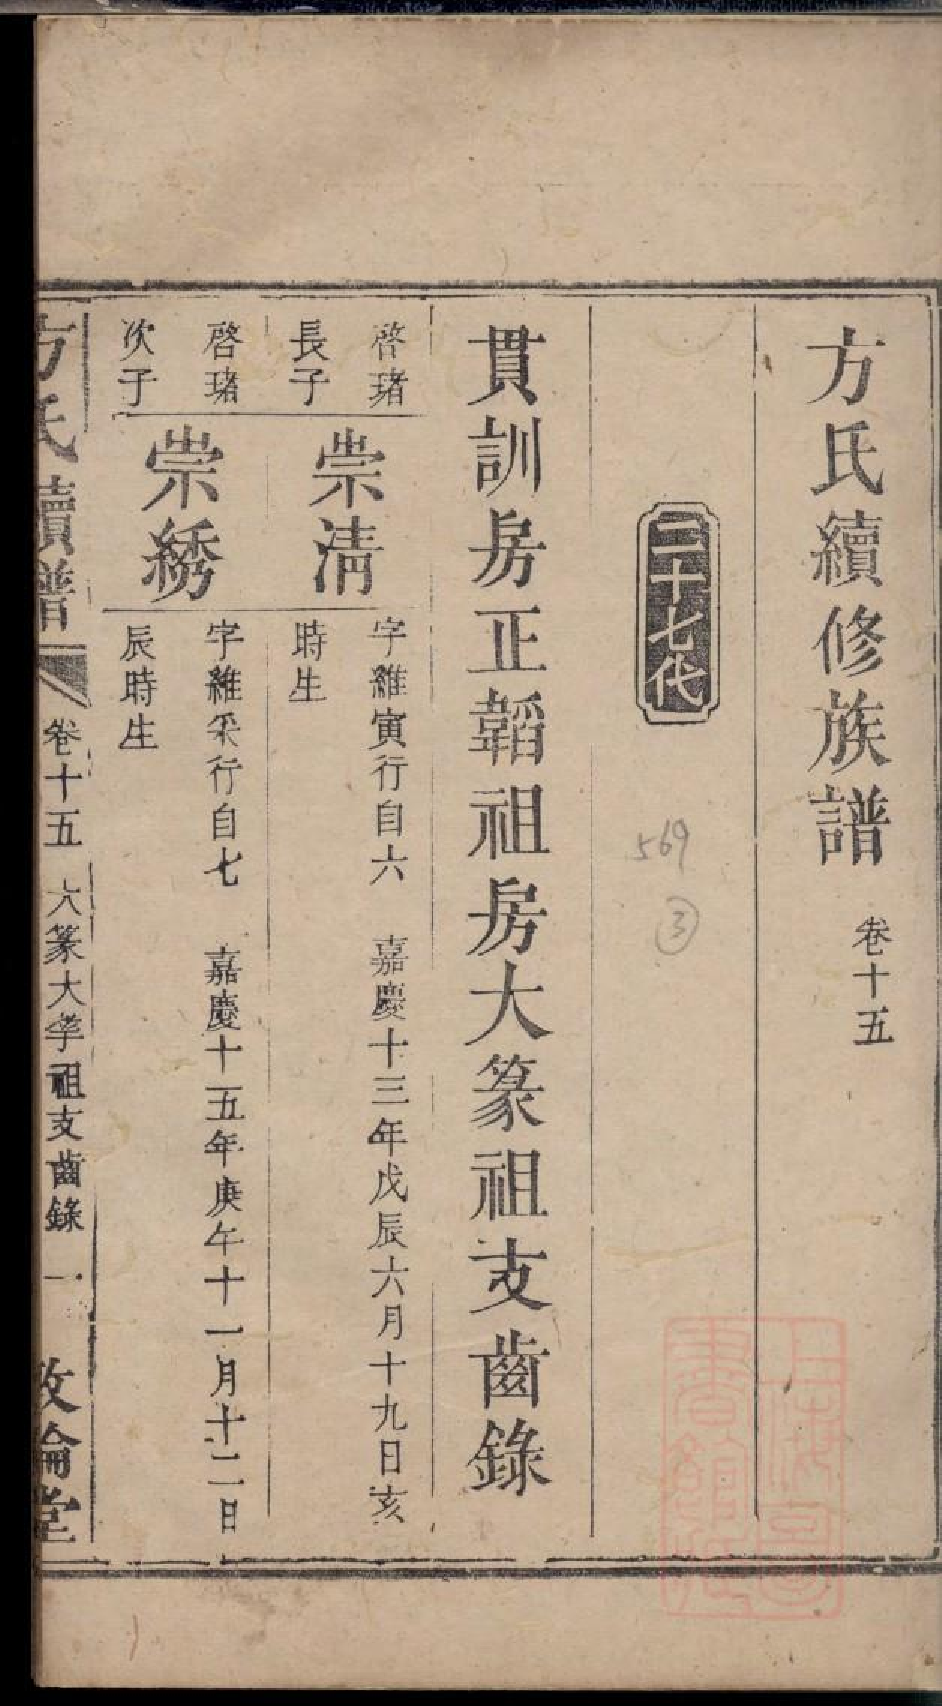 方氏續修族譜 卷十五
二十七代
569
③
貫訓房正韜祖房大篆祖支齒錄
啓瑇
長子
崇清
字維寅行自六 嘉慶十三年戊辰六月十九日亥
時生
啓瑇
次子
崇綉
字維采行自七 嘉慶十五年庚午十一月十二日
辰時生
方氏續譜 卷十五 大篆大孝祖支齒錄 一 敦倫堂